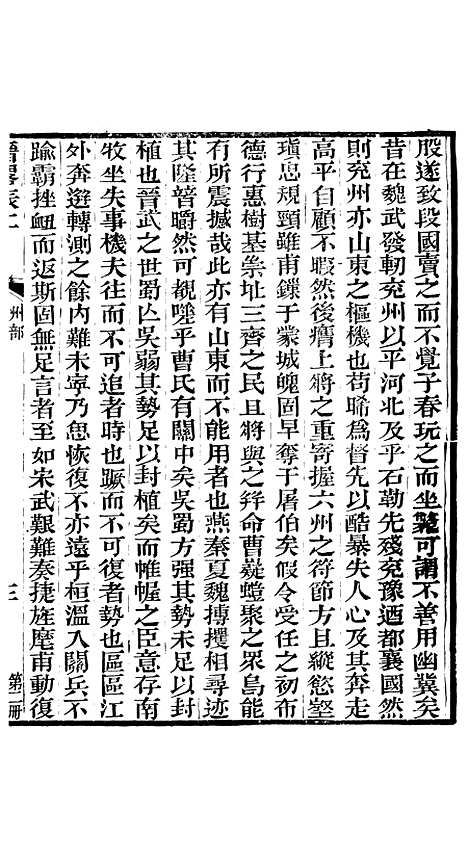 殷遂致段國賣之而不覺子春玩之而坐斃可謂不善用幽冀矣
昔在魏武發軔兖州以平河北及乎石勒先殘兖豫迺都襄國然
則兖州亦山東之樞機也苟晞爲督先以酷暴失人心及其奔走
高平自顧不暇然後膺上將之重寄握六州之符節方且縱慾壑
瑱忠規頸雖甫鏁于蒙城魄固早奪于屠伯矣假令受任之初布
德行惠樹基崇址三齊之民且將與之幷命曹嶷螘聚之眾烏能
有所震撼哉此亦有山東而不能用者也燕秦夏魏搏攫相尋迹
其隆替皭然可覩嗟乎曹氏有關中矣吳蜀方强其勢未足以封
植也晉武之世蜀亾吳弱其勢足以封植矣而帷幄之臣意存南
牧坐失事機夫往而不可追者時也蹶而不可復者勢也區區江
外奔迸轉測之餘內難未寧乃怱恢復不亦遠乎桓溫入關兵不
踰霸挫衄而返斯固無足言者至如宋武艱難奏捷旌麾甫動復
晉畧表二
州部
三
第二冊